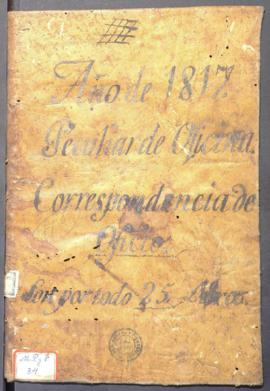 Año de 1817
Peculiar de Oficina
Correspondencia de
Oficio
Son por todo 25